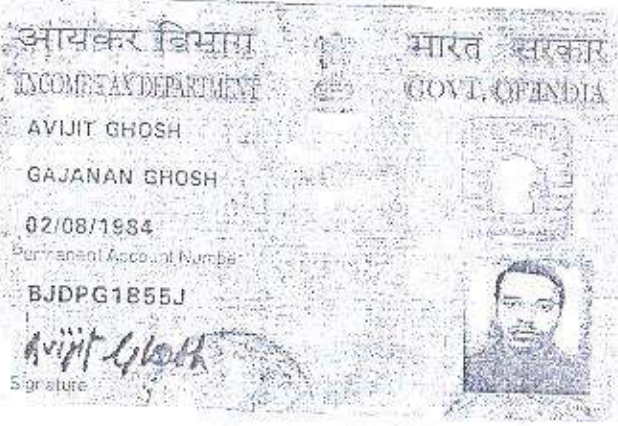 आयकर विभाग
भारत सरकार
INCOME TAX DEPARTMENT
GOVT. OF INDIA
AVIJIT GHOSH
GAJANAN GHOSH
02/08/1984
Permanent Account Number
BJDPG1855J
Avijit Ghosh
Signature